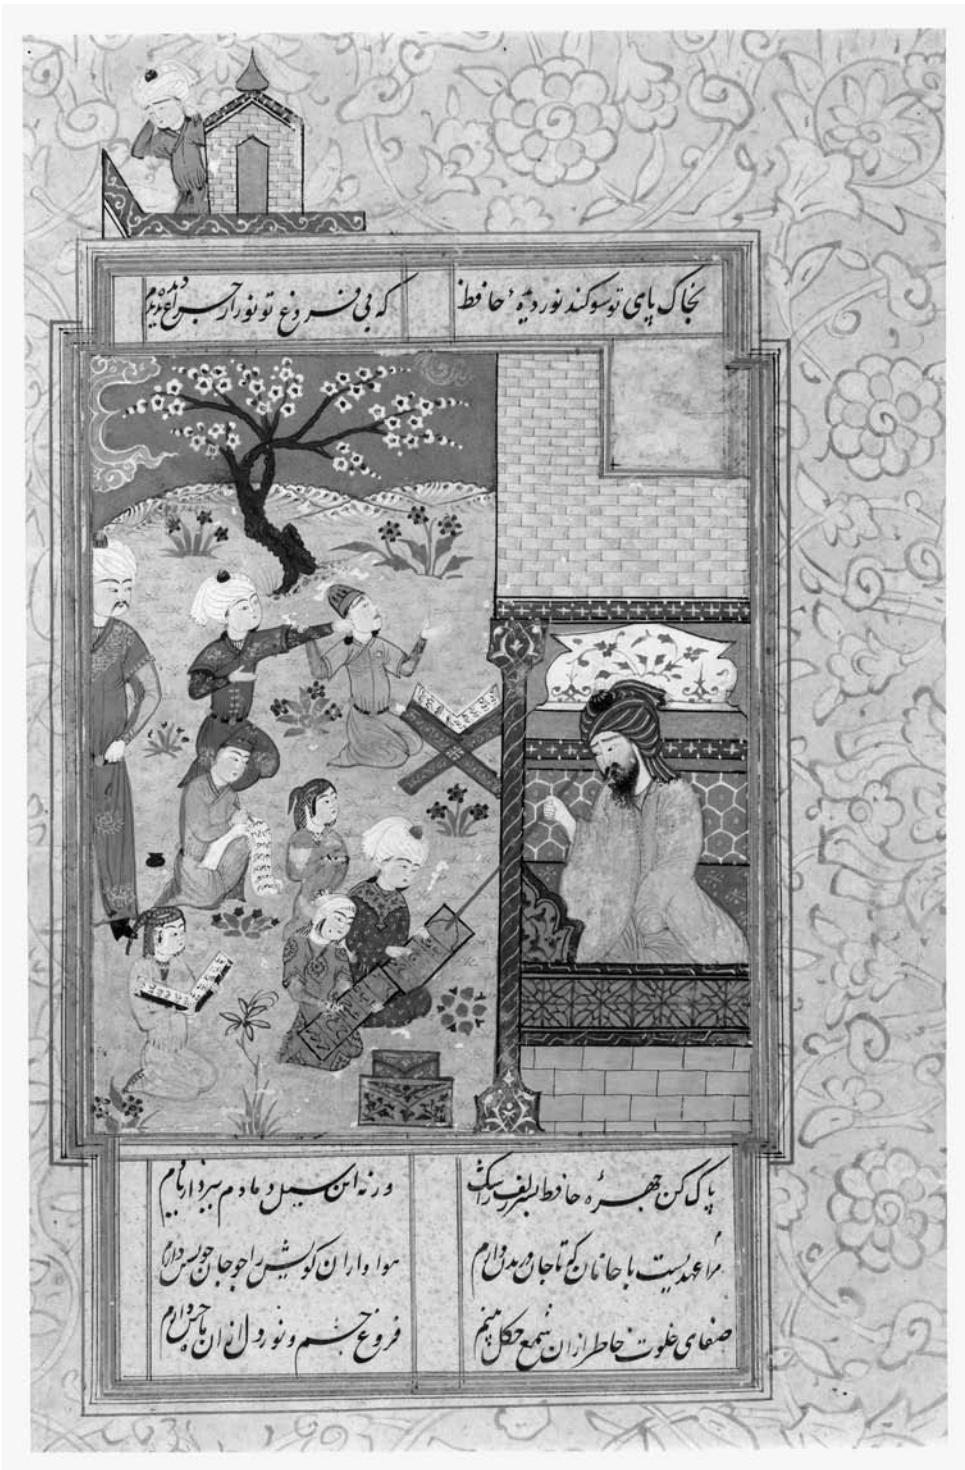 بخاک پای تو سوکند نور دیدهٔ حافظ که بی فروغ تو نور از چراغ دیده ندیدم
پاک کن چهرهٔ حافظ بسر زلف ز اشک ورنه این سیل دمادم ببرد
مرا عهدیست با جانان که تا جان در بدن دارم هواداران کویش را چو جان خویشتن دارم
صفای خلوت خاطر از ان شمع چکل بینم فروغ چشم و نور دل از ان ماه ختن دارم